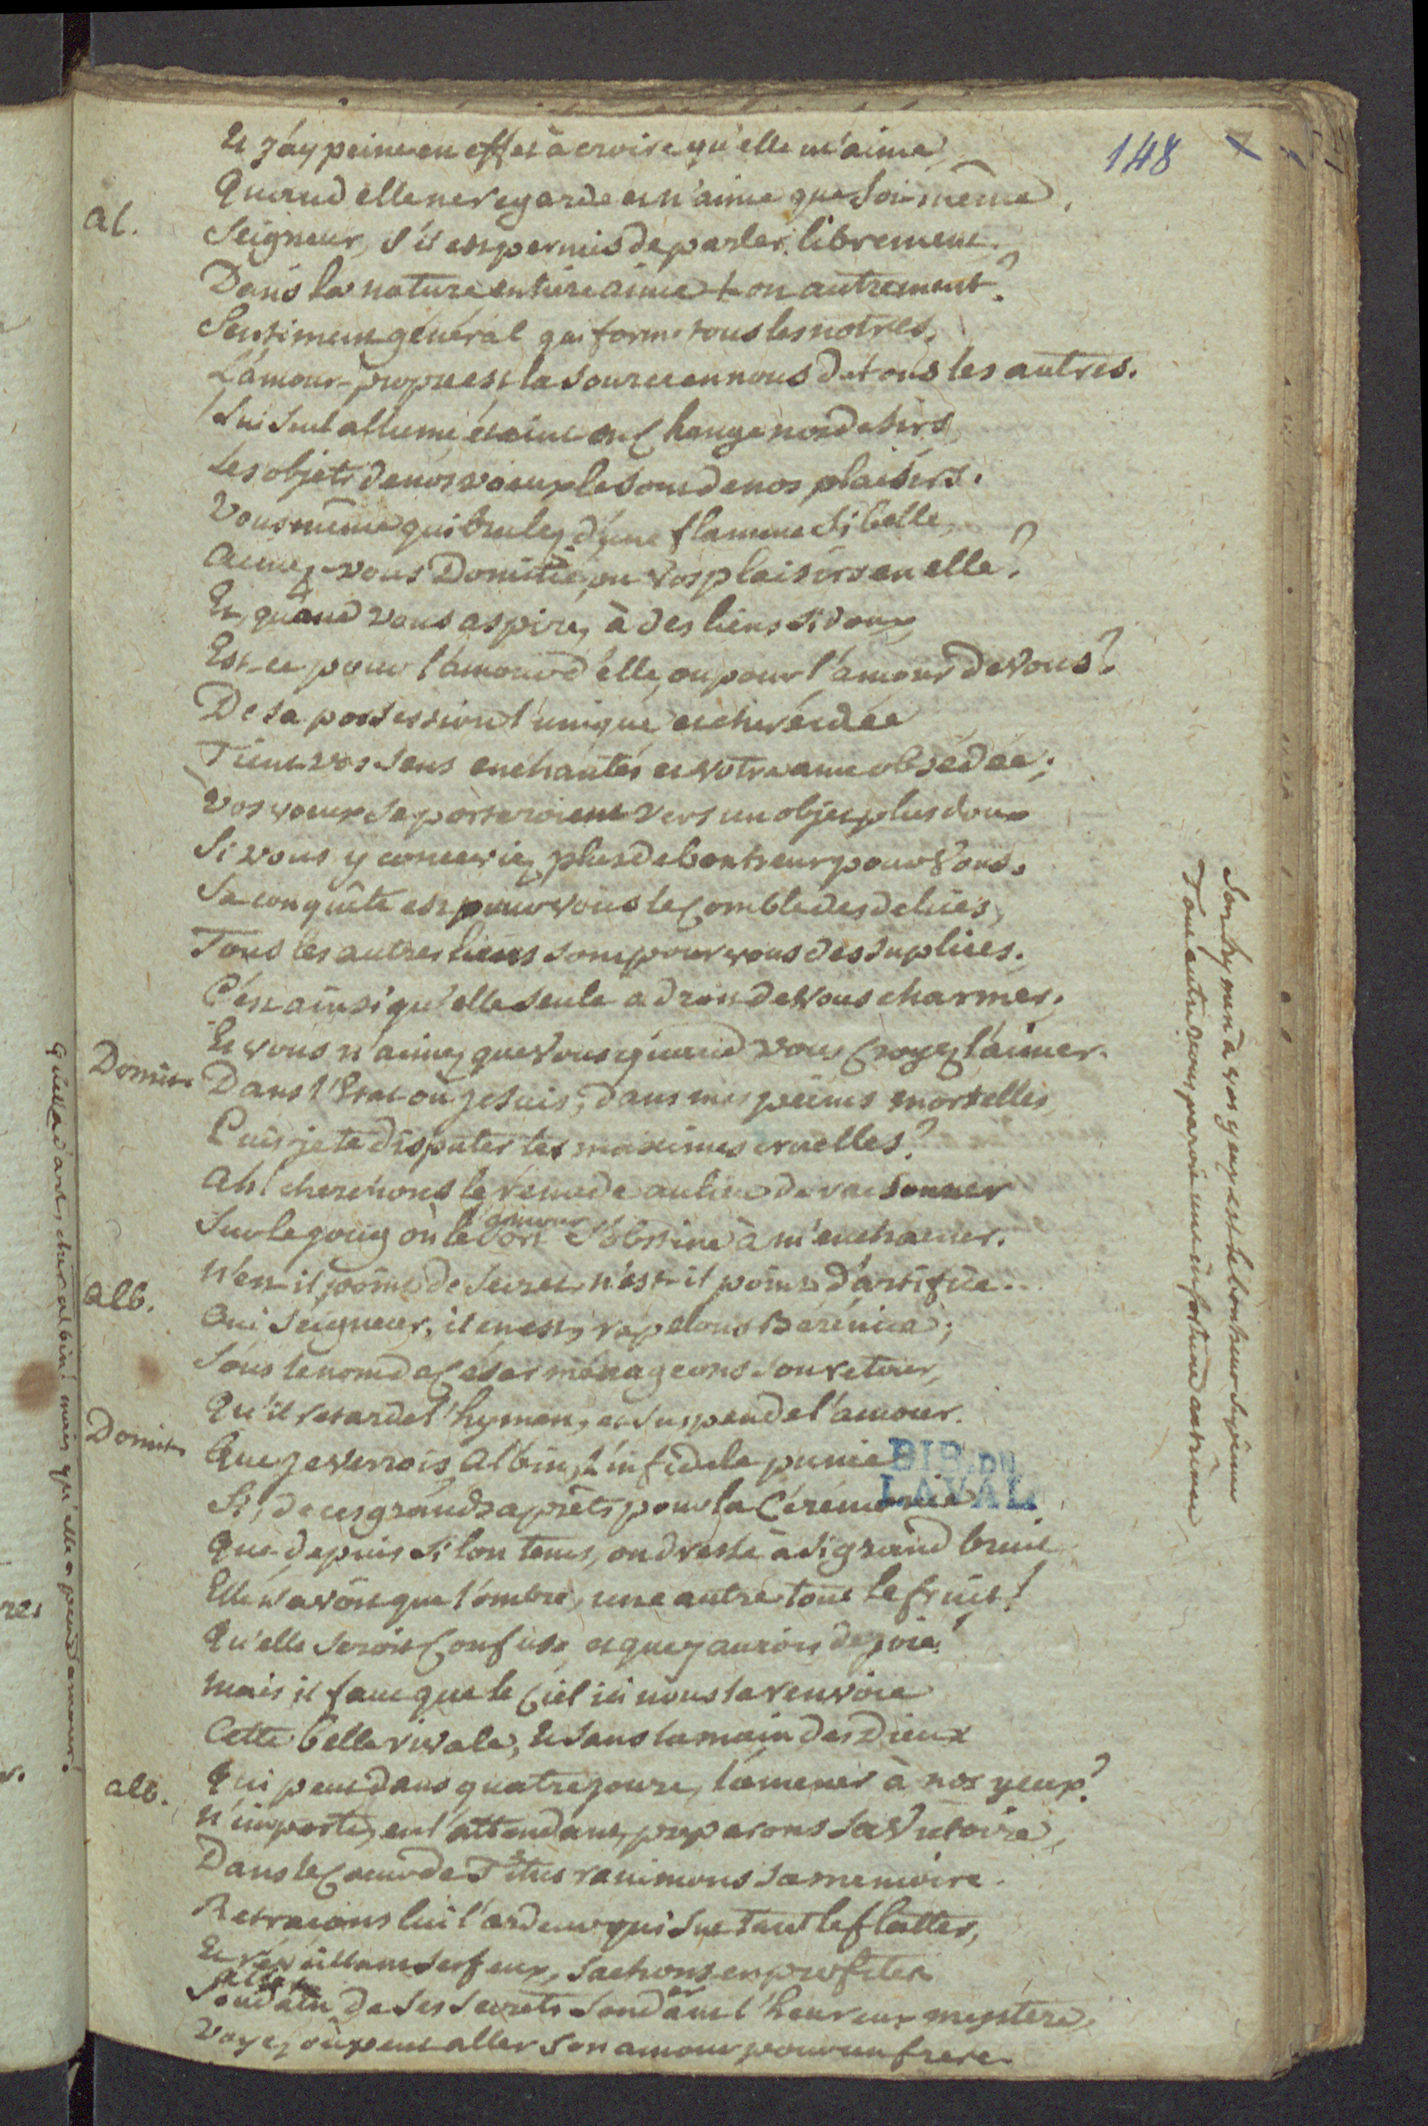 148
Et j'ay peine en effet à croire qu'elle m'aime
Quand elle ne regarde et n'aime que Soi-même.
Al.
Seigneur, s'il est permis de parler librement,
Dans la nature entiere aime t-on autrement?
Sentiment général qui forme tous les notres,
L'amour-propre est la source en nous de tous les autres.
Lui seul allume, éteint et Change nos desirs,
Les objets de nos voeux le sont de nos plaisirs.
Vous même qui brulez d'une flamme Si belle,
Aimez-vous Domitie, ou vos plaisirs en elle?
Et quand vous aspirez à des liens si doux
Est-ce pour l'amour d'elle, ou pour l'amour de Vous?
De sa possession l'unique et chere idée
Tient vos sens enchantés et votre ame obsédée;
Vos voeux se porteroient vers un objet plus doux
Si vous y conceviez plus de bonheur pour Vous.
Sa conquête est pour vous le Comble des delices,
Tous les autres liens sont pour vous des suplices.
C'est ainsi qu'elle seule a droit de vous charmer,
Et vous n'aimez que Vous quand vous Croyez l'aimer.
Domit.
Dans l'Etat où je suis, dans mes peines mortelles
Puis je te disputer tes maximes cruelles?
Ah! cherchons le remede au lieu de raisonner
Sur le joug où le sort s'obstine à m'enchainer.
l'amour
N'est-il point de secret, n'est-il point d'artifice.
Alb.
Oui Seigneur, il en est, rapelons Bérénice;
Sous le nom de César ménageons son retour,
Qu'il retarde l'hymen, et suspende l'amour.
Domit.
Que je verrois Albin, l'infidele punie
Si, de ces grands aprêts pour la Cérémonie
Que depuis si lon tems, on dresse à si grand bruit
Elle n'avoit que l'ombre, une autre tout le fruit!
Qu'elle seroit Confuse et que j'aurois de joie!
Mais il faut que le Ciel ici nous la renvoie
Cette belle rivale, et sans la main des Dieux
Qui peut dans quatre jours, l'amener à nos yeux?
Alb.
N'importe, en l'attendant, preparons sa Victoire,
Dans le Coeur de Titus ranimons sa memoire.
Retraçons lui l'ardeur qui sut tant le flatter,
Et réveillant ses feux, sachons en profiter
Soudain de ses secrets sondant l'heureux mystere,
Voyez où peut aller son amour pour un frere.
Son hymen à vos yeux est le bonheur suprême
Tout autre vous paroit une infortune extrême
Qu'elle a d'art, cher Albin! mais qu'elle a peu d'amour!
BIB. DU
LAVAL
res
r.